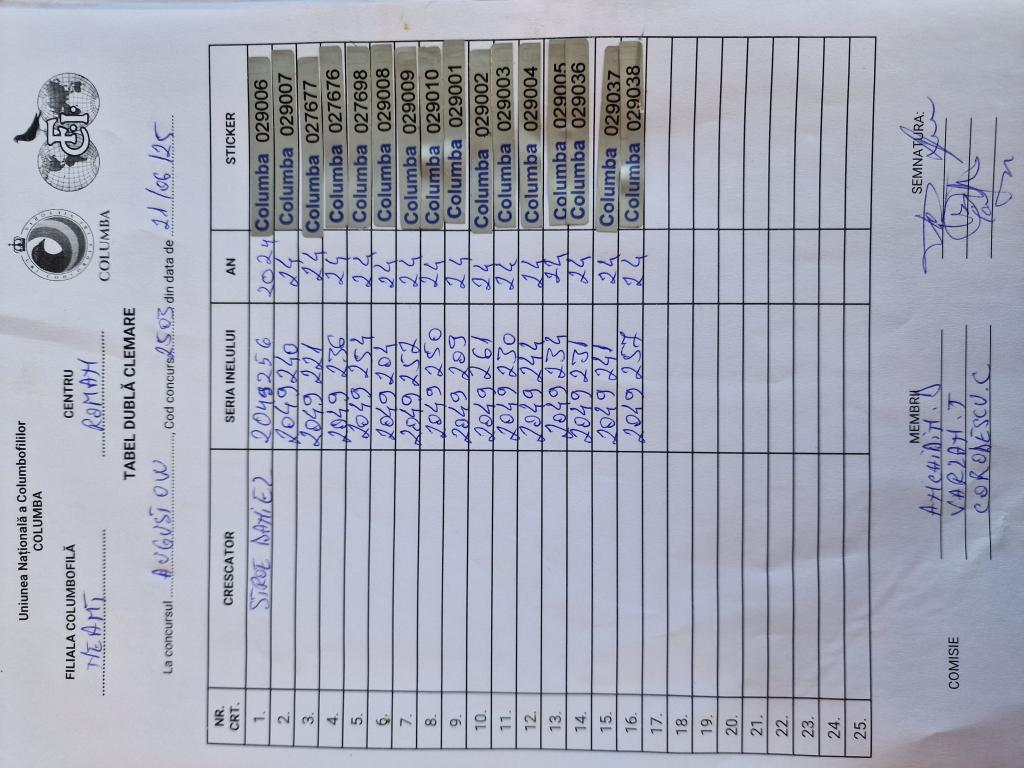 Uniunea Națională a Columbofililor
COLUMBA
FILIALA COLUMBOFILĂ CENTRU
NEAMT ROMAN
COLUMBA
TABEL DUBLĂ CLEMARE
La concursul AUGUSTOW, Cod concurs 2503 din data de 21/06/25
NR. CRT. CRESCATOR SERIA INELULUI AN STICKER
1. SIROE DANIEL 2049256 2024 Columba 029006
2. 2049240 24 Columba 029007
3. 2049221 24 Columba 027677
4. 2049236 24 Columba 027676
5. 2049254 24 Columba 027698
6. 2049204 24 Columba 029008
7. 2049252 24 Columba 029009
8. 2049250 24 Columba 029010
9. 2049209 24 Columba 029001
10. 2049261 24 Columba 029002
11. 2049230 24 Columba 029003
12. 2049244 24 Columba 029004
13. 2049234 24 Columba 029005
14. 2049231 24 Columba 029036
15. 2049241 24 Columba 029037
16. 2049257 24 Columba 029038
17.
18.
19.
20.
21.
22.
23.
24.
25.
COMISIE MEMBRII SEMNATURA:
VARZAN.I
CORODESCU.C